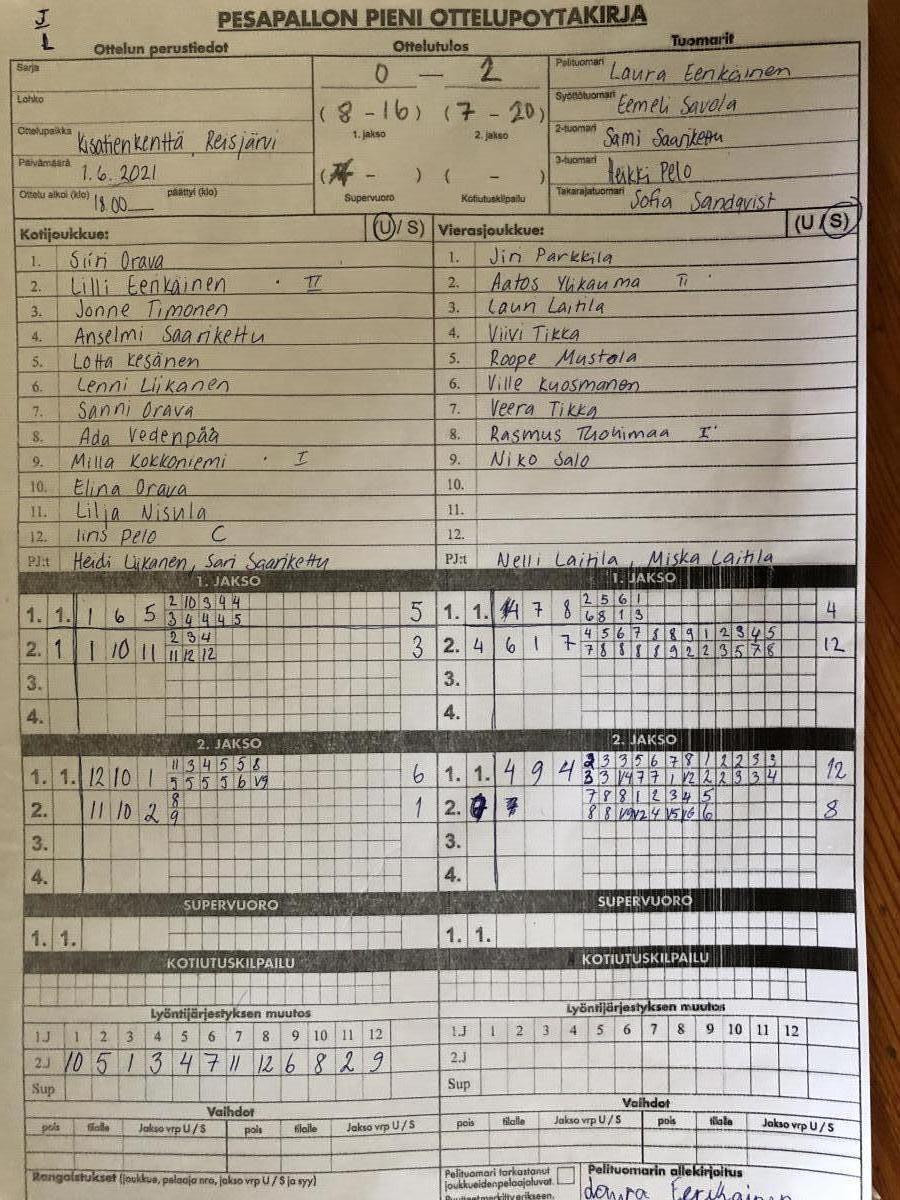 J
L
PESAPALLON PIENI OTTELUPOYTAKIRJA
Ottelun perustiedot Ottelutulos Tuomarit
Sarja
Lohko
Ottelupaikka Kisatienkenttä, Reisjärvi
Päivämäärä 1.6.2021
Ottelu alkoi (klo) 18.00 päättyi (klo)
0 – 2
(8 - 16) (7 - 20)
1. jakso 2. jakso
( - ) ( - )
Supervuoro Kotiutuskilpailu
Pelituomari Laura Eenkäinen
Syöttötuomari Eemeli Savola
2-tuomari Sami Saarikettu
3-tuomari Heikki Pelo
Takarajatuomari Sofia Sandqvist
Kotijoukkue: (U/S) Vierasjoukkue: (U/S)
1. Siiri Orava 1. Jiri Parkkila
2. Lilli Eenkäinen II 2. Aatos Ylikauma II
3. Jonne Timonen 3. Lauri Laitila
4. Anselmi Saarikettu 4. Viivi Tikka
5. Lotta Kesänen 5. Roope Mustola
6. Lenni Liikanen 6. Ville Kuosmanen
7. Sanni Orava 7. Veera Tikka
8. Ada Vedenpää 8. Rasmus Tuohimaa I
9. Milla Kokkoniemi I 9. Niko Salo
10. Elina Orava 10.
11. Lilja Nisula 11.
12. Iiris Pelo C 12.
PJ:t Heidi Liikanen, Sari Saarikettu PJ:t Nelli Laitila, Miska Laitila
1. JAKSO 1. JAKSO
1. 1. 1 6 5 2 10 3 4 4 5 1. 1. 4 7 8 2 5 6 1 4
3 4 4 4 5 6 8 1 3
2. 1 1 10 11 2 3 4 3 2. 4 6 1 7 4 5 6 7 8 8 9 1 2 3 4 5 12
11 12 12 7 8 8 8 8 9 2 2 3 5 7 8
3. 3.
4. 4.
2. JAKSO 2. JAKSO
1. 1. 12 10 1 11 3 4 5 5 8 6 1. 1. 4 9 4 2 3 3 5 6 7 8 1 2 2 3 3 12
5 5 5 5 6 V9 3 3 V4 7 7 1 V2 2 2 3 3 4
2. 11 10 2 8 1 2. 7 8 8 1 2 3 4 5 8
9 8 8 V9 V2 4 V5 V6 6
3. 3.
4. 4.
SUPERVUORO SUPERVUORO
1. 1. 1. 1.
KOTIUTUSKILPAILU KOTIUTUSKILPAILU
Lyöntijärjestyksen muutos Lyöntijärjestyksen muutos
1.J 1 2 3 4 5 6 7 8 9 10 11 12 1.J 1 2 3 4 5 6 7 8 9 10 11 12
2.J 10 5 1 3 4 7 11 12 6 8 2 9 2.J
Sup Sup
Vaihdot Vaihdot
pois tilalle Jakso vrp U / S pois tilalle Jakso vrp U / S pois tilalle Jakso vrp U / S pois tilalle Jakso vrp U / S
Rangaistukset (joukkue, pelaaja nro, jakso vrp U / S ja syy)
Pelituomari tarkastanut
joukkueiden pelaajaluvat.
Pelituomarin allekirjoitus
Laura Eenkäinen